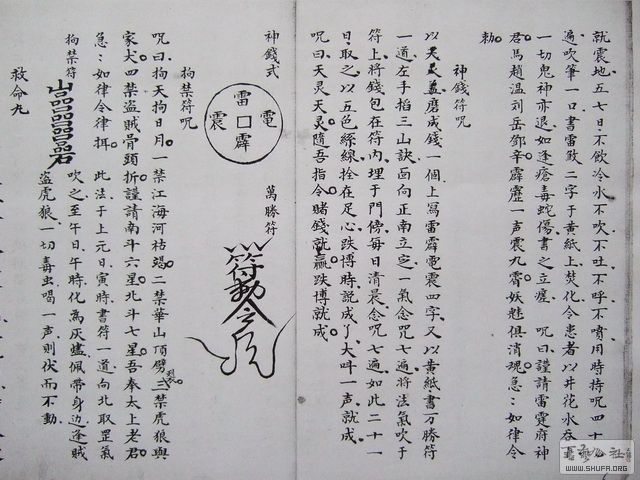 就震地五七日不飲冷水不吹不吐不呼不噴用時持呪四十
遍吹筆一口書雷敗二字于黄紙上焚化令患者以井花水吞
一切鬼神亦退如逢瘡毒蛇傷書之立瘥 呪曰謹請雷霆府神
君馬趙溫刘岳鄧辛霹靂一声震九霄妖魅俱消魂急〻如律令
勅
神錢符呪
磨成錢一個上寫雷霹電震四字又以黄紙書万勝符
一道左手掐三山訣面向正南立定一氣念咒七遍将法氣吹于
符上将錢包在符內埋于門傍每日清晨念呪七遍如此二十一
日取之以五色絲線拴在足心跌博時説成了大呌一声就成
呪曰天灵天灵隨吾指令賭錢就贏跌博就成
神錢式
雷
電
口
震
霹
萬勝符
拘禁符呪
呪曰拘天拘日月一禁江海河枯竭二禁華山頂劈裂三禁虎狼與
家犬四禁盗賊骨頭折謹請南斗六星北斗七星吾奉太上老君
急〻如律令律拜 此法于上元日寅時書符一道向北取罡氣
拘禁符
吹之至午日午時化為灰燼佩帶身边逢賊
盗虎狼一切毒虫喝一声則伏而不動
救命九
WWW.SHUFA.ORG